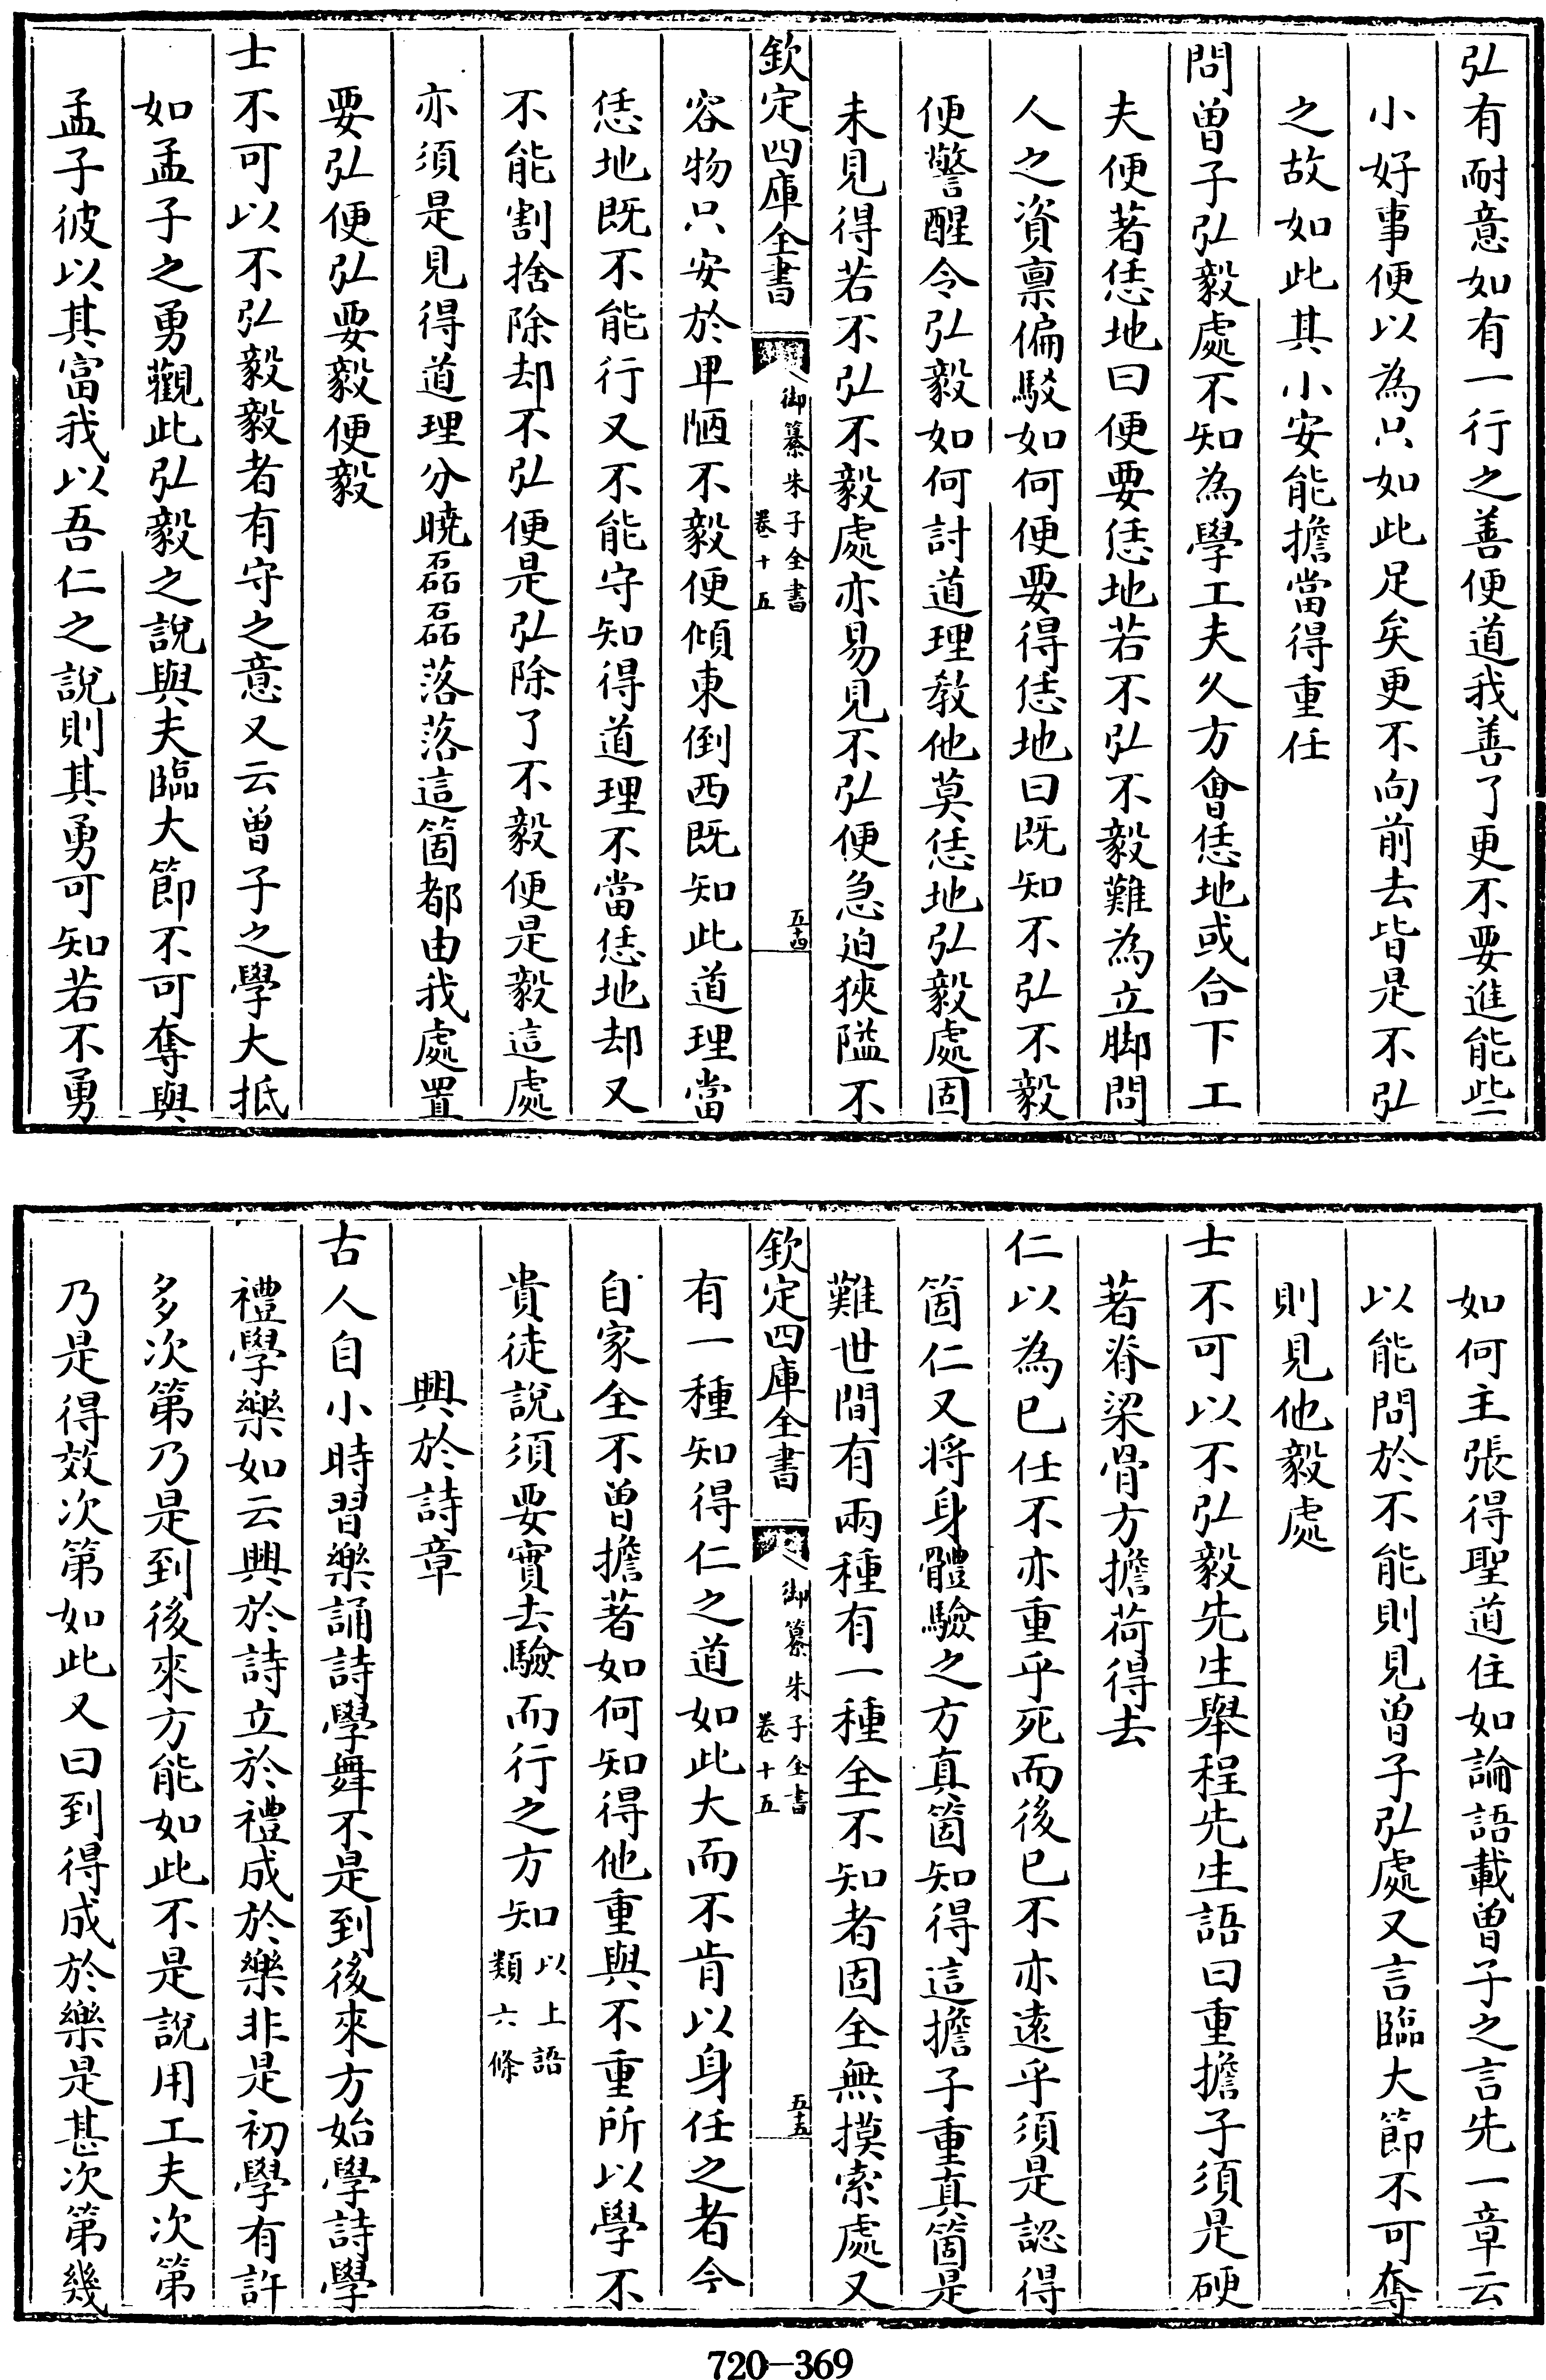 弘有耐意如有一行之善便道我善了更不要進能些
小好事便以為只如此足矣更不向前去皆是不弘
之故如此其小安能擔當得重任
問曾子弘毅處不知為學工夫久方會恁地或合下工
夫便著恁地曰便要恁地若不弘不毅難為立脚問
人之資禀偏駁如何便要得恁地曰既知不弘不毅
便警醒令弘毅如何討道理教他莫恁地弘毅處固
未見得若不弘不毅處亦易見不弘便急迫狹隘不
欽定四庫全書
御纂朱子全書
卷十五
五十四
容物只安於卑陋不毅便傾東倒西既知此道理當
恁地既不能行又不能守知得道理不當恁地却又
不能割捨除却不弘便是弘除了不毅便是毅這處
亦須是見得道理分曉磊磊落落這箇都由我處置
要弘便弘要毅便毅
士不可以不弘毅毅者有守之意又云曾子之學大抵
如孟子之勇觀此弘毅之說與夫臨大節不可奪與
孟子彼以其富我以吾仁之說則其勇可知若不勇
如何主張得聖道住如論語載曾子之言先一章云
以能問於不能則見曾子弘處又言臨大節不可奪
則見他毅處
士不可以不弘毅先生舉程先生語曰重擔子須是硬
著脊梁骨方擔荷得去
仁以為己任不亦重乎死而後已不亦遠乎須是認得
箇仁又將身體驗之方真箇知得這擔子重真箇是
難世間有兩種有一種全不知者固全無摸索處又
欽定四庫全書
御纂朱子全書
卷十五
五十五
有一種知得仁之道如此大而不肯以身任之者今
自家全不曾擔著如何知得他重與不重所以學不
貴徒說須要實去驗而行之方知以上語類六條
興於詩章
古人自小時習樂誦詩學舞不是到後來方始學詩學
禮學樂如云興於詩立於禮成於樂非是初學有許
多次第乃是到後來方能如此不是說用工夫次第
乃是得效次第如此又曰到得成於樂是甚次第幾
720-369